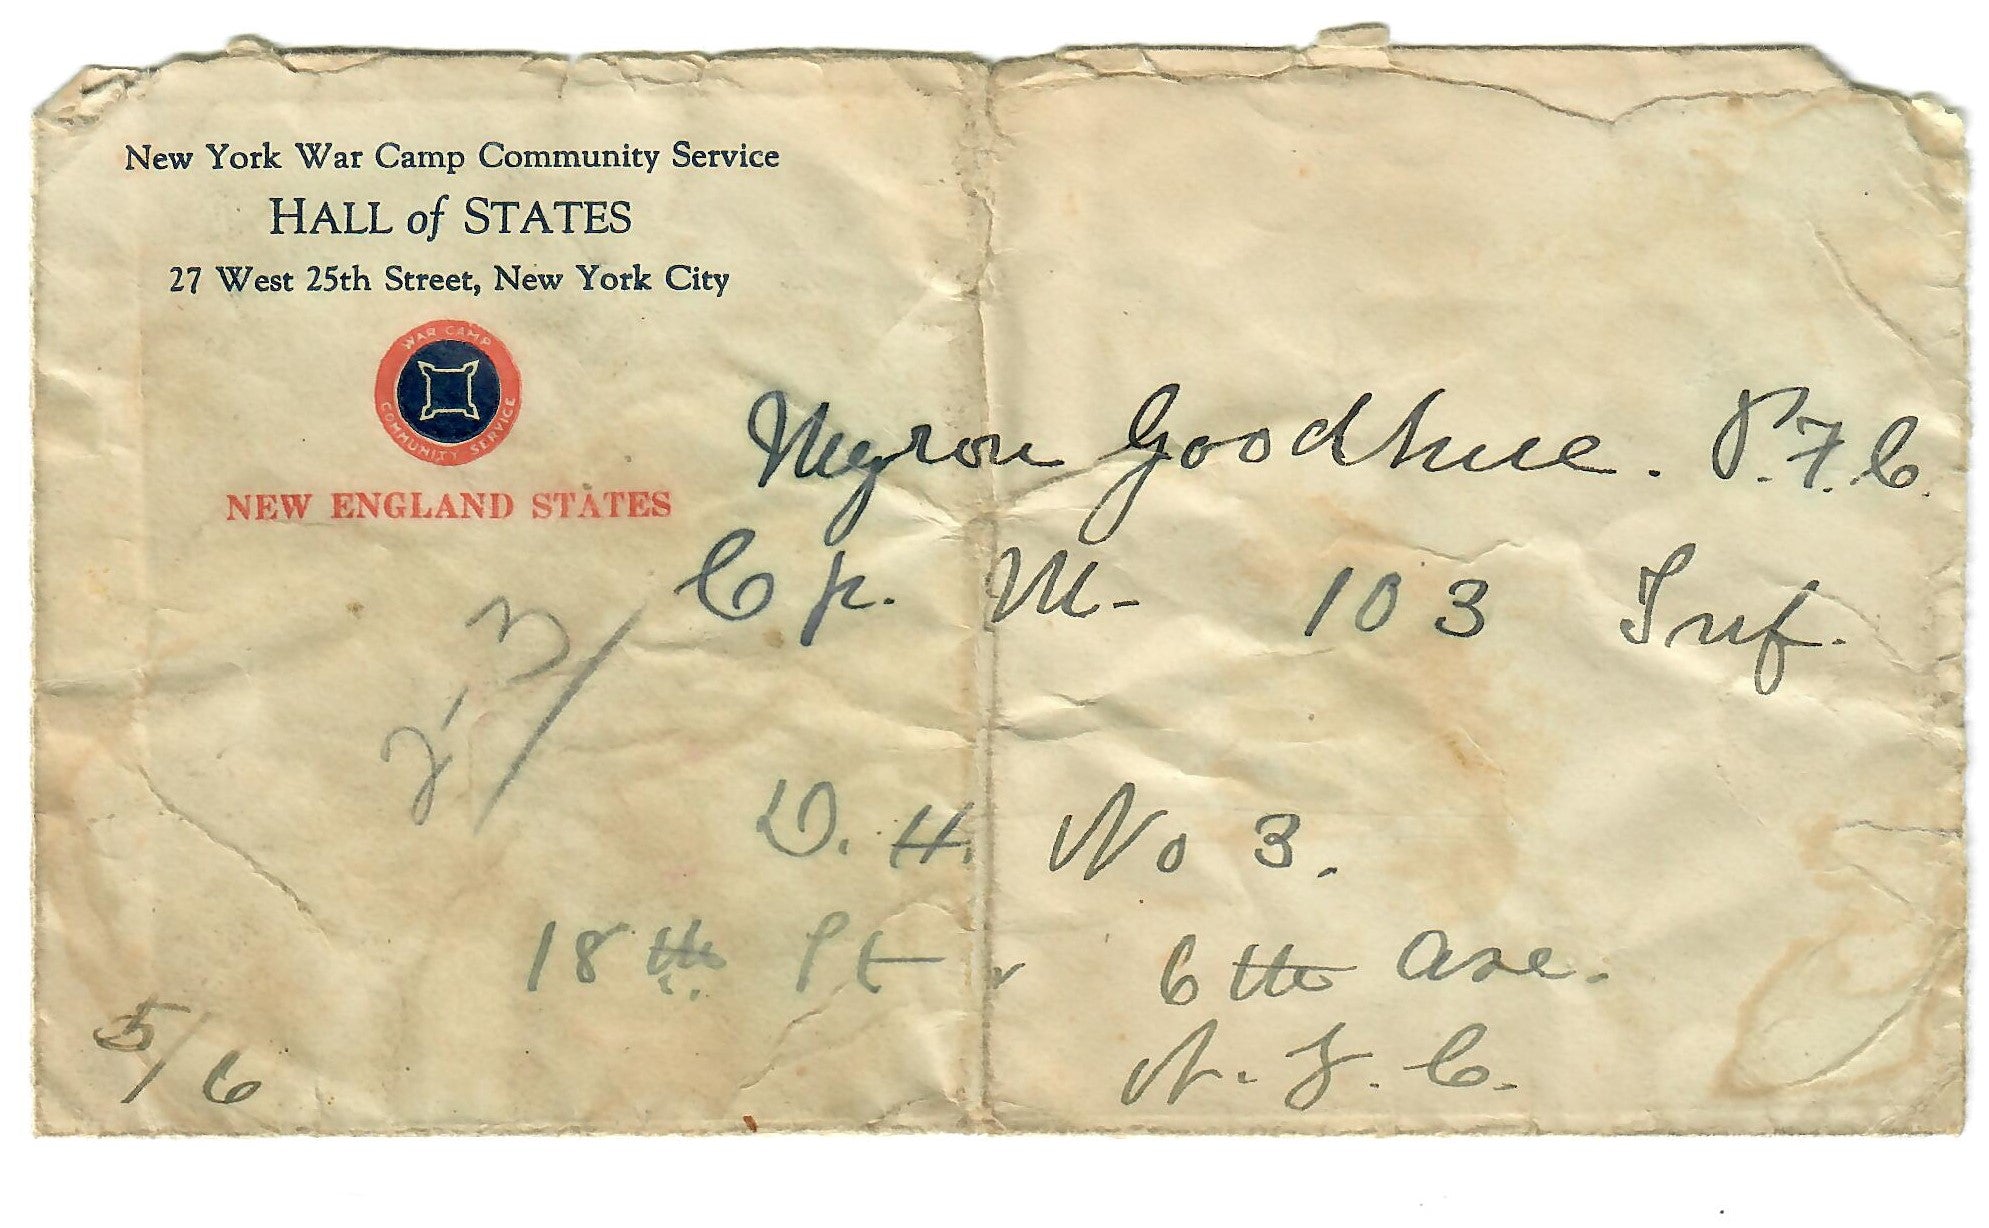 New York War Camp Community Service
HALL of STATES
27 West 25th Street, New York City
WAR CAMP
COMMUNITY SERVICE
NEW ENGLAND STATES
Myron Goodhue. P.F.C.
Cp. M- 103 Inf.
2-3/
D. H. No 3.
18th St 6th Ave.
N.Y.C.
5/6